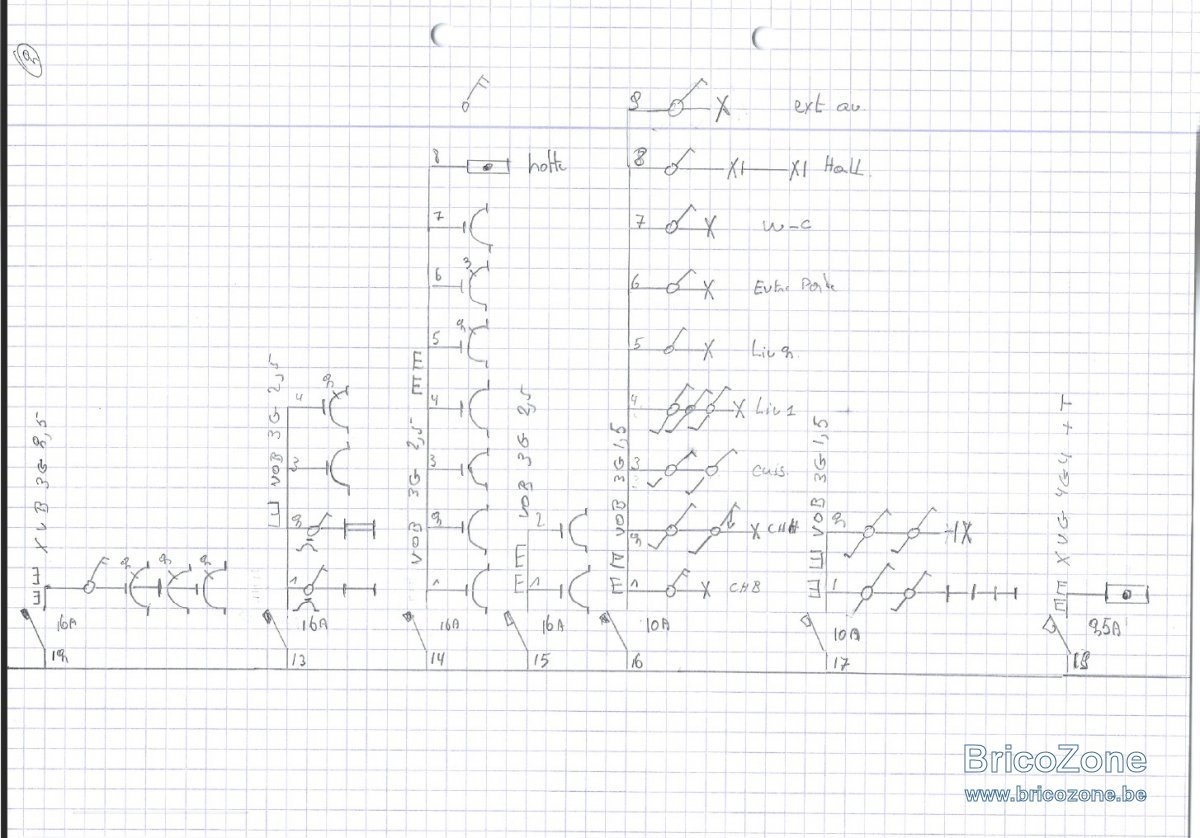 2
9 ext av.
8 hotte
8 Hall.
7
7 W-C
3
6
6 Extr. Porte
2
5
5 Liv 2.
2
4
4
4 Liv 1
3
3
3 cuis.
2
2
2
2
2
1
1
1
1 CHB
1
2 2 2
XVB 3G 2,5
VOB 3G 2,5
VOB 3G 2,5
VOB 3G 2,5
VOB 3G 1,5
VOB 3G 1,5
XVG 4G4 + T
16A 16A 16A 16A 10A 10A 25A
12 13 14 15 16 17 18
BricoZone
www.bricozone.be